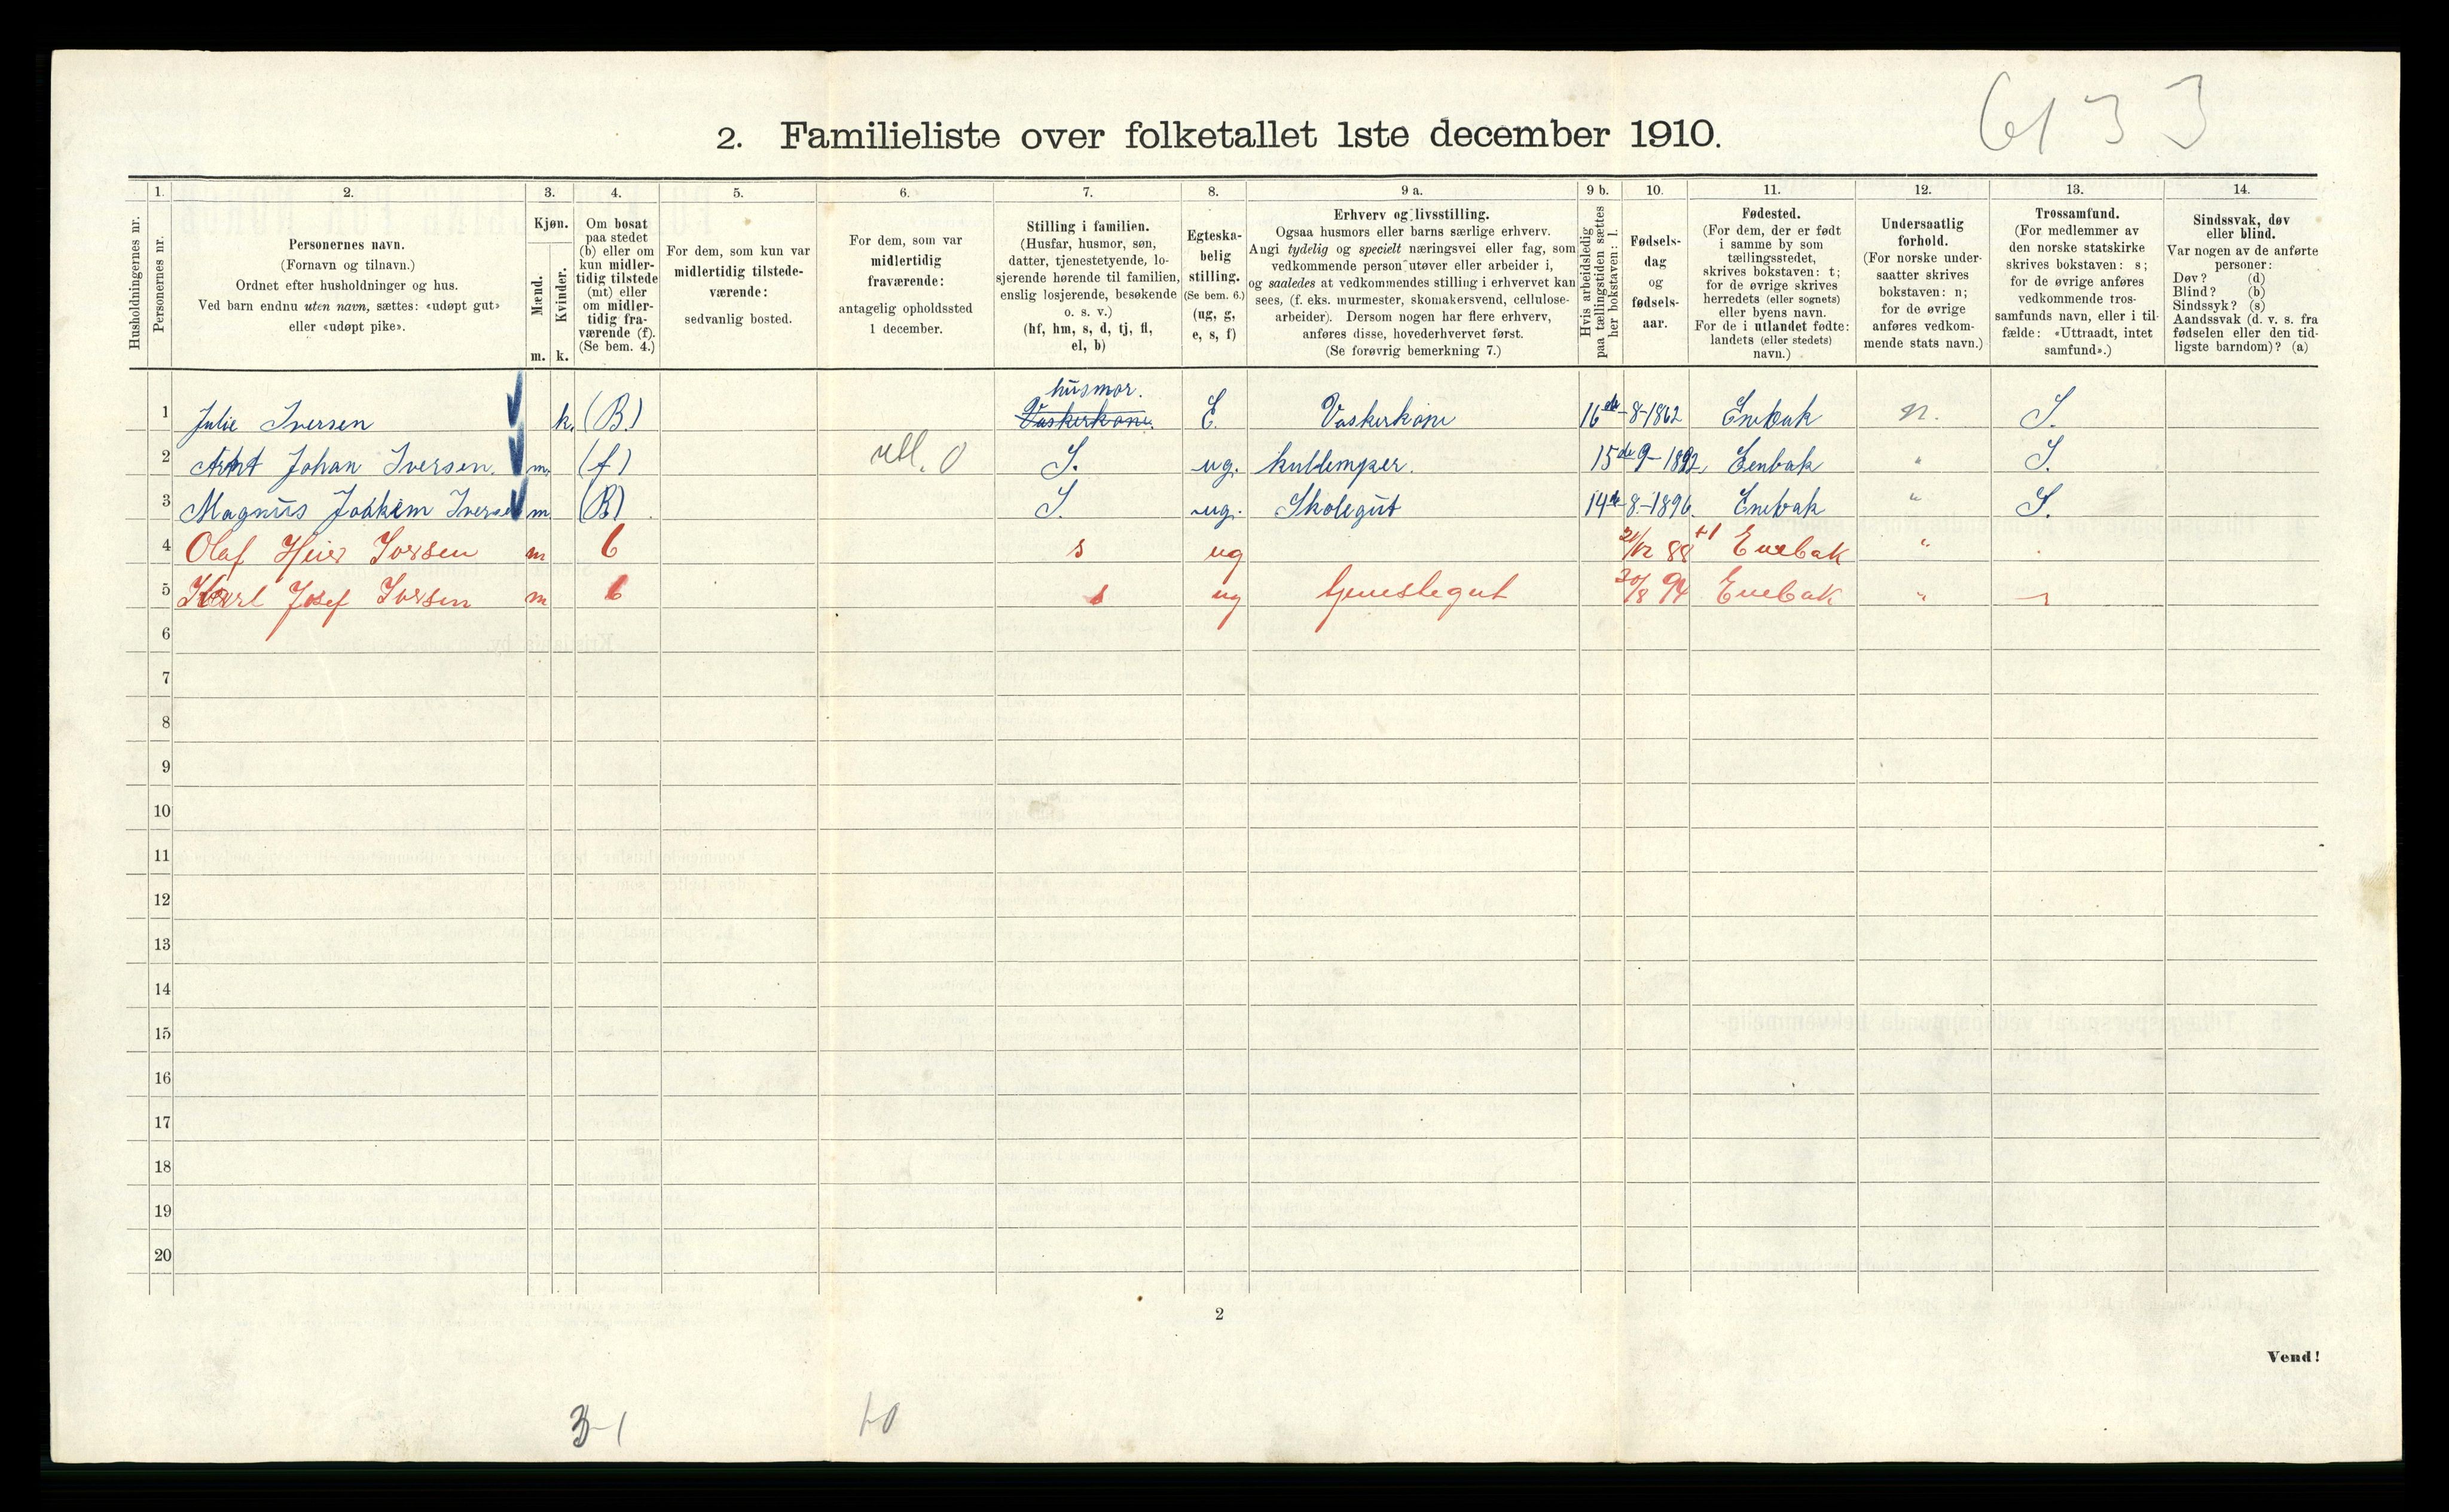 6133
2. Familieliste over folketallet 1ste december 1910.
Husholdningernes nr.
1.
Personernes nr.
2.
Personernes navn.
(Fornavn og tilnavn.)
Ordnet efter husholdninger og hus.
Ved barn endnu uten navn, sættes: «udøpt gut»
eller «udøpt pike».
3.
Kjøn.
Mænd.
m.
Kvinder.
k.
4.
Om bosat
paa stedet
(b) eller om
kun midler-
tidig tilstede
(mt) eller
om midler-
tidig fra-
værende (f).
(Se bem. 4.)
5.
For dem, som kun var
midlertidig tilstede-
værende:
sedvanlig bosted.
6.
For dem, som var
midlertidig
fraværende:
antagelig opholdssted
1 december.
7.
Stilling i familien.
(Husfar, husmor, søn,
datter, tjenestetyende, lo-
sjerende hørende til familien,
enslig losjerende, besøkende
o. s. v.)
(hf, hm, s, d, tj, fl,
el, b)
8.
Egteska-
belig
stilling.
(Se bem. 6.)
(ug, g,
e, s, f)
9 a.
Erhverv og livsstilling.
Ogsaa husmors eller barns særlige erhverv.
Angi tydelig og specielt næringsvei eller fag, som
vedkommende person utøver eller arbeider i,
og saaledes at vedkommendes stilling i erhvervet kan
sees, (f. eks. murmester, skomakersvend, cellulose-
arbeider). Dersom nogen har flere erhverv,
anføres disse, hovederhvervet først.
(Se forøvrig bemerkning 7.)
9 b.
Hvis arbeidsledig
paa tællingstiden sættes
her bokstaven: l.
10.
Fødsels-
dag
og
fødsels-
aar.
11.
Fødested.
(For dem, der er født
i samme by som
tællingsstedet,
skrives bokstaven: t;
for de øvrige skrives
herredets (eller sognets)
eller byens navn.
For de i utlandet fødte:
landets (eller stedets)
navn.)
12.
Undersaatlig
forhold.
(For norske under-
saatter skrives
bokstaven: n;
for de øvrige
anføres vedkom-
mende stats navn.)
13.
Trossamfund.
(For medlemmer av
den norske statskirke
skrives bokstaven: s;
for de øvrige anføres
vedkommende tros-
samfunds navn, eller i til-
fælde: «Uttraadt, intet
samfund».)
14.
Sindssvak, døv
eller blind.
Var nogen av de anførte
personer:
Døv? (d)
Blind? (b)
Sindssyk? (s)
Aandssvak (d. v. s. fra
fødselen eller den tid-
ligste barndom)? (a)
husmor.
1 Julie Iversen k. (B.) Vaskerkone. E. Vaskerkone 16de-8-1862 Enebak n. S.
2 Arnt Johan Iversen. m. (f) utl. 0 S. ug. kullemper. 15de 9-1892, Eenbak " S.
3 Magnus Joakim Iversen m (B) S. ug. Skolegut 14de 8.-1896. Enebak " S.
4 Olaf Heier Iversen m b s ug 21/12 88 +1 Enebak "
5 Karl Josef Iversen m b s ug tjenestegut 30/8 94 Enebak "
6
7
8
9
10
11
12
13
14
15
16
17
18
19
20
2
Vend!
3-1